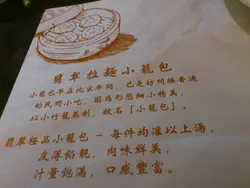 翡翠拉麵小籠包
小籠包早在北宋年間，已是坊間極普遍
的民間小吃，因為形態細小精美，
以小竹籠蒸制，故名「小籠包」。
翡翠極品小籠包 - 每件均灌以上湯，
皮薄餡靚，肉味鮮美，
汁量飽滿，口感豐富。